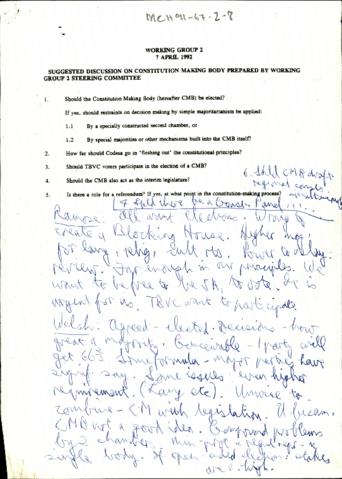 MCH91-67-2-8
WORKING GROUP 2
7 APRIL 1992
SUGGESTED DISCUSSION ON CONSTITUTION MAKING BODY PREPARED BY WORKING
GROUP 2 STEERING COMMITTEE
1. Should the Constitution Making Body (hereafter CMB) be elected?
If yes, should restraints on decision making by simple majoritarianism be applied:
1.1 By a specially constructed second chamber, or
1.2 By special majorities or other mechanisms built into the CMB itself?
2. How far should Codesa go in "fleshing out" the constitutional principles?
3. Should TBVC voters participate in the election of a CMB?
4. Should the CMB also act as the interim legislature?
5. Is there a role for a referendum? If yes, at what point in the constitution-making process?
6. Shld CMB draft
regional const.
7. Shld there be a Const. Panel
Ramosa. All want elections. Wrong to
create a Blocking House. Higher maj.
for lang, relig, cult rts. Power to delay
review. Far enough in our principles. We
want to be free to be SA, to vote. It is
urgent for us. TBVC want to participate
Welsh. Agreed - elected. Decisions - how
great a majority. Conceivable - 1 party will
get 66⅔. Some formula - major parties have
signif. say. Some issues even higher
requirement. (Lang etc). Unwise to
combine - CM with legislation.
CMB not a good idea. Compound problems
by 2 chambers.
single body. If open-ended elections stakes
are v. high.